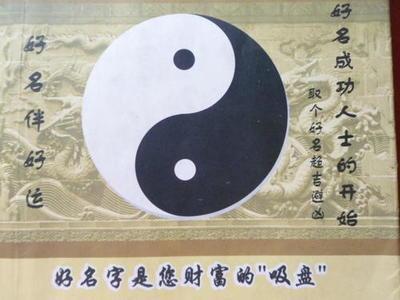 好名成功人士的开始
取个好名趋吉避凶
好名伴好运
好名字是您财富的"吸盘"